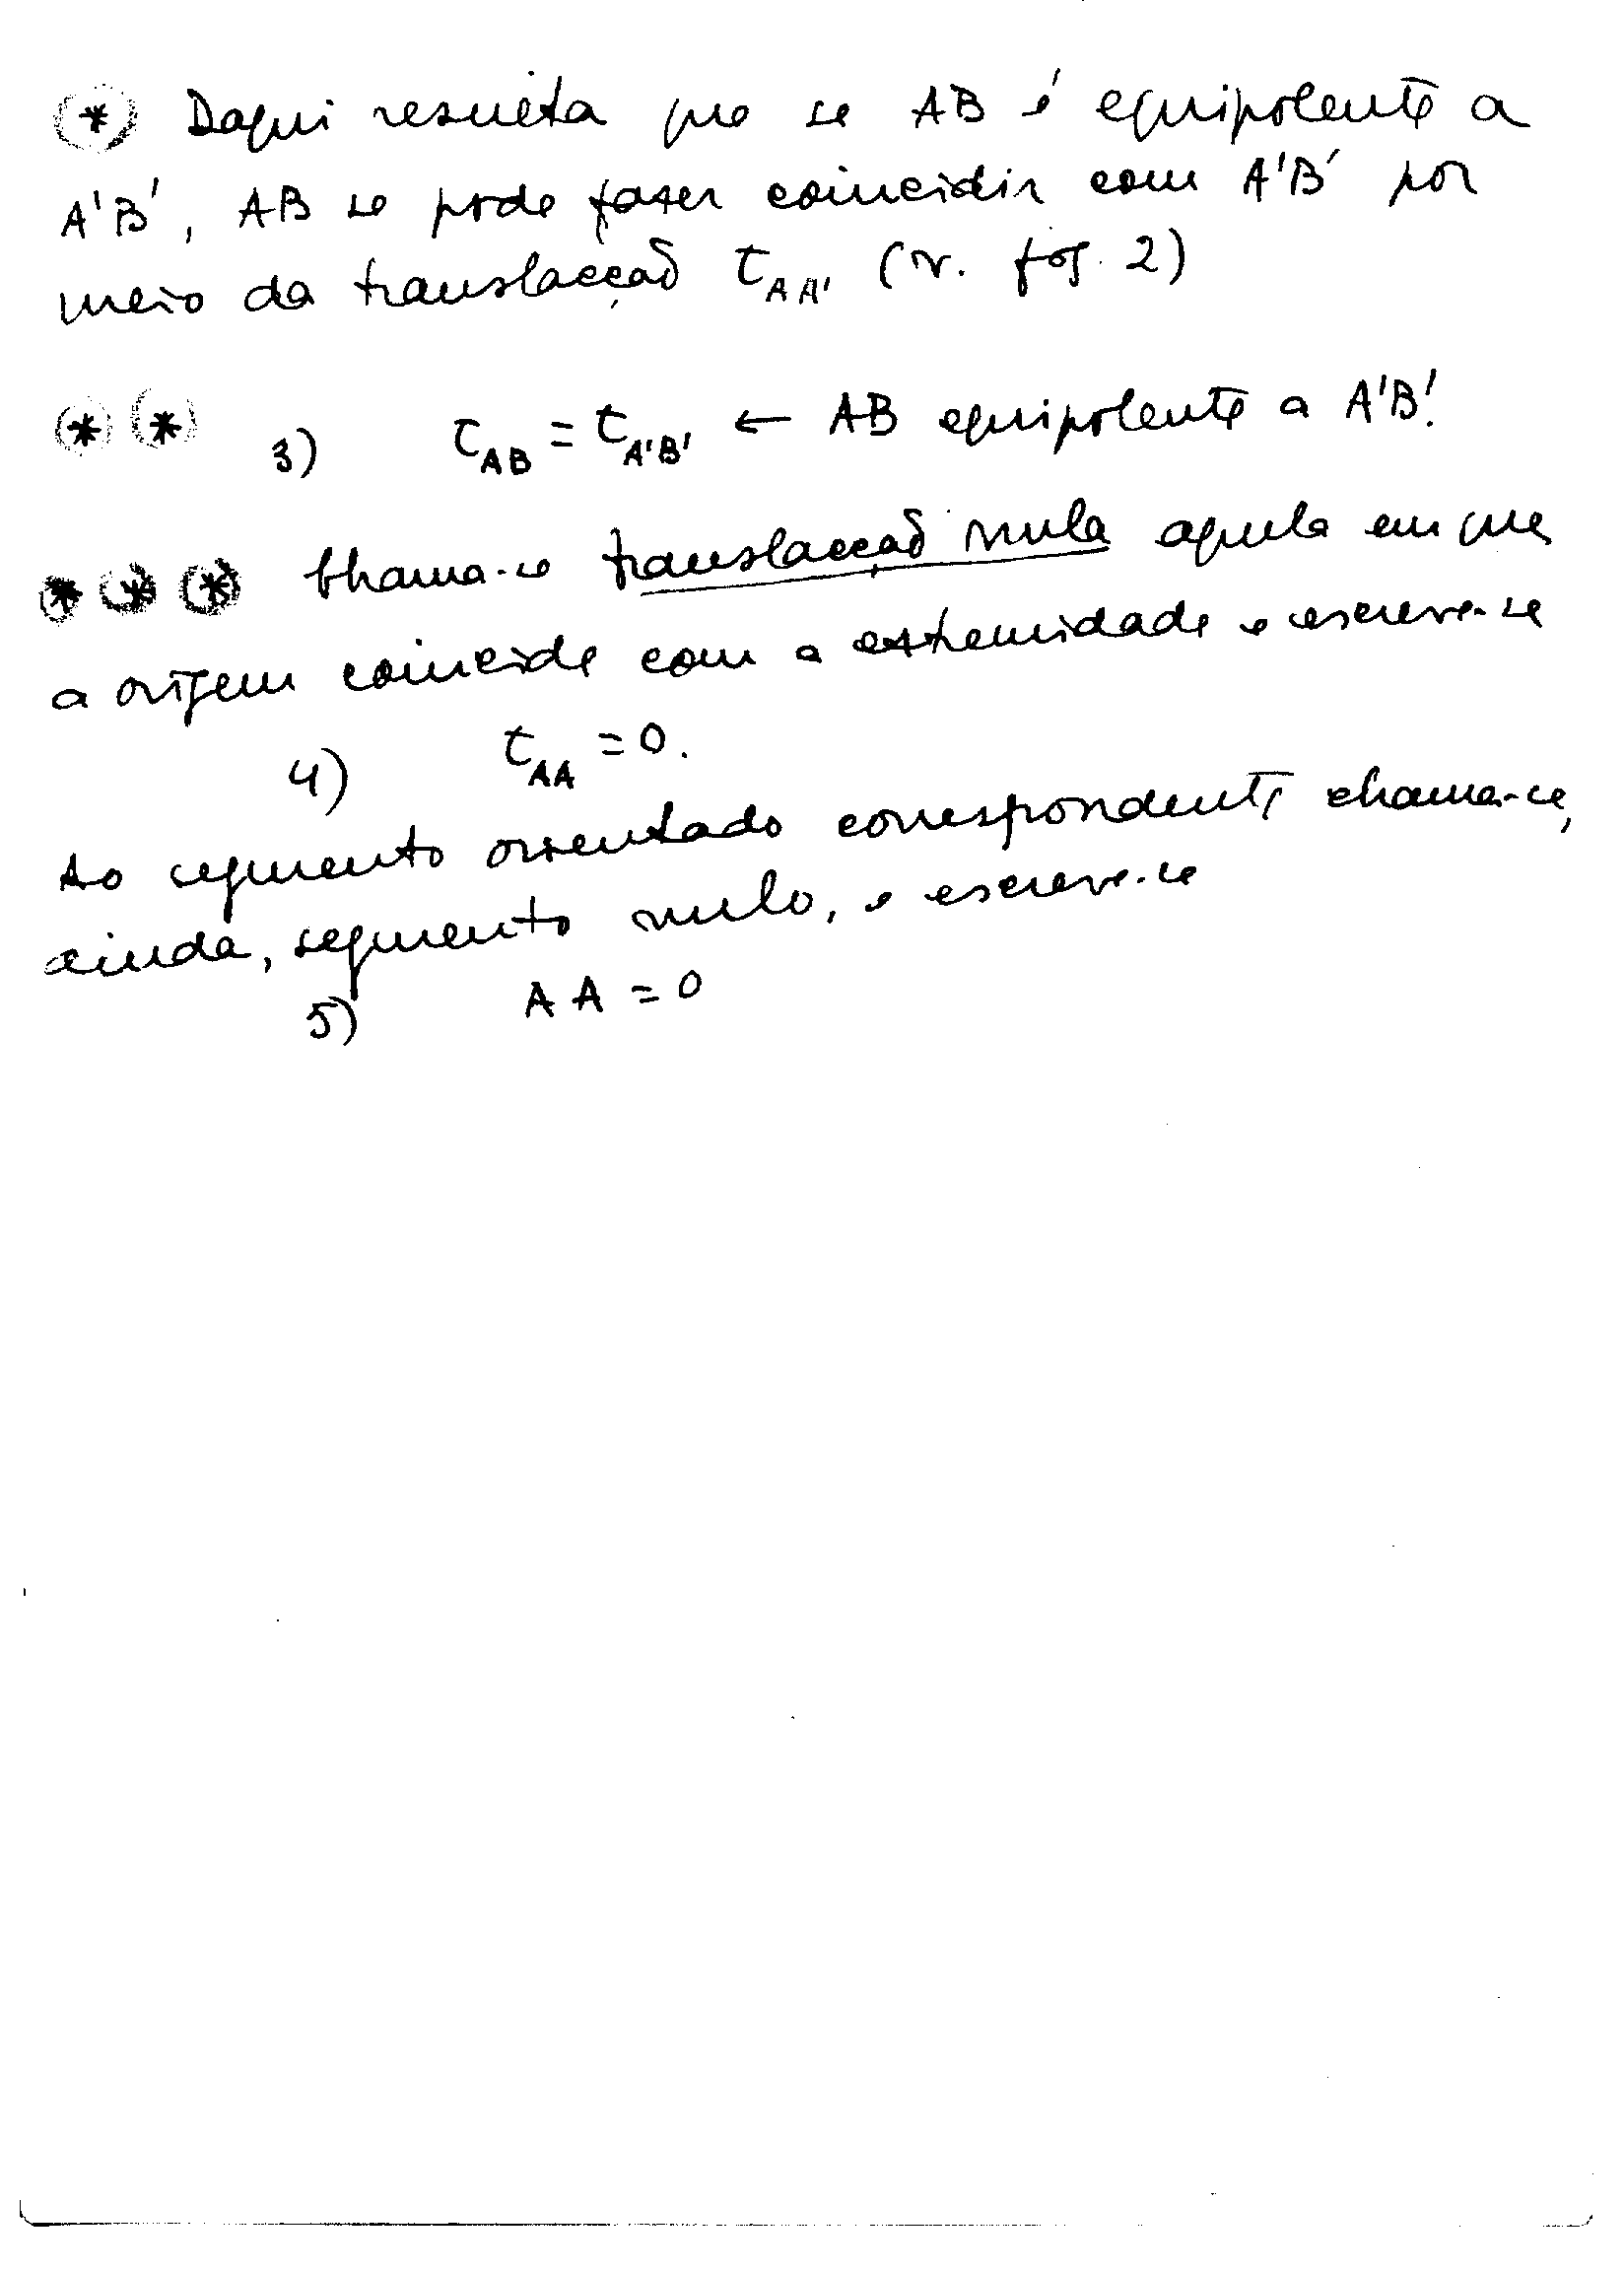 (*) Daqui resulta que se AB é equipolente a
A'B', AB se pode fazer coincidir com A'B' por
meio da translacção τ_AA' (v. fig. 2)
(*) (*) 3) τ_AB = τ_A'B' ← AB equipolente a A'B'.
(*) (*) (*) Chama-se translacção nula aquela em que
a origem coincide com a extremidade e escreve-se
4) τ_AA = 0.
Ao segmento orientado correspondente chama-se,
ainda, segmento nulo, e escreve-se
5) AA = 0